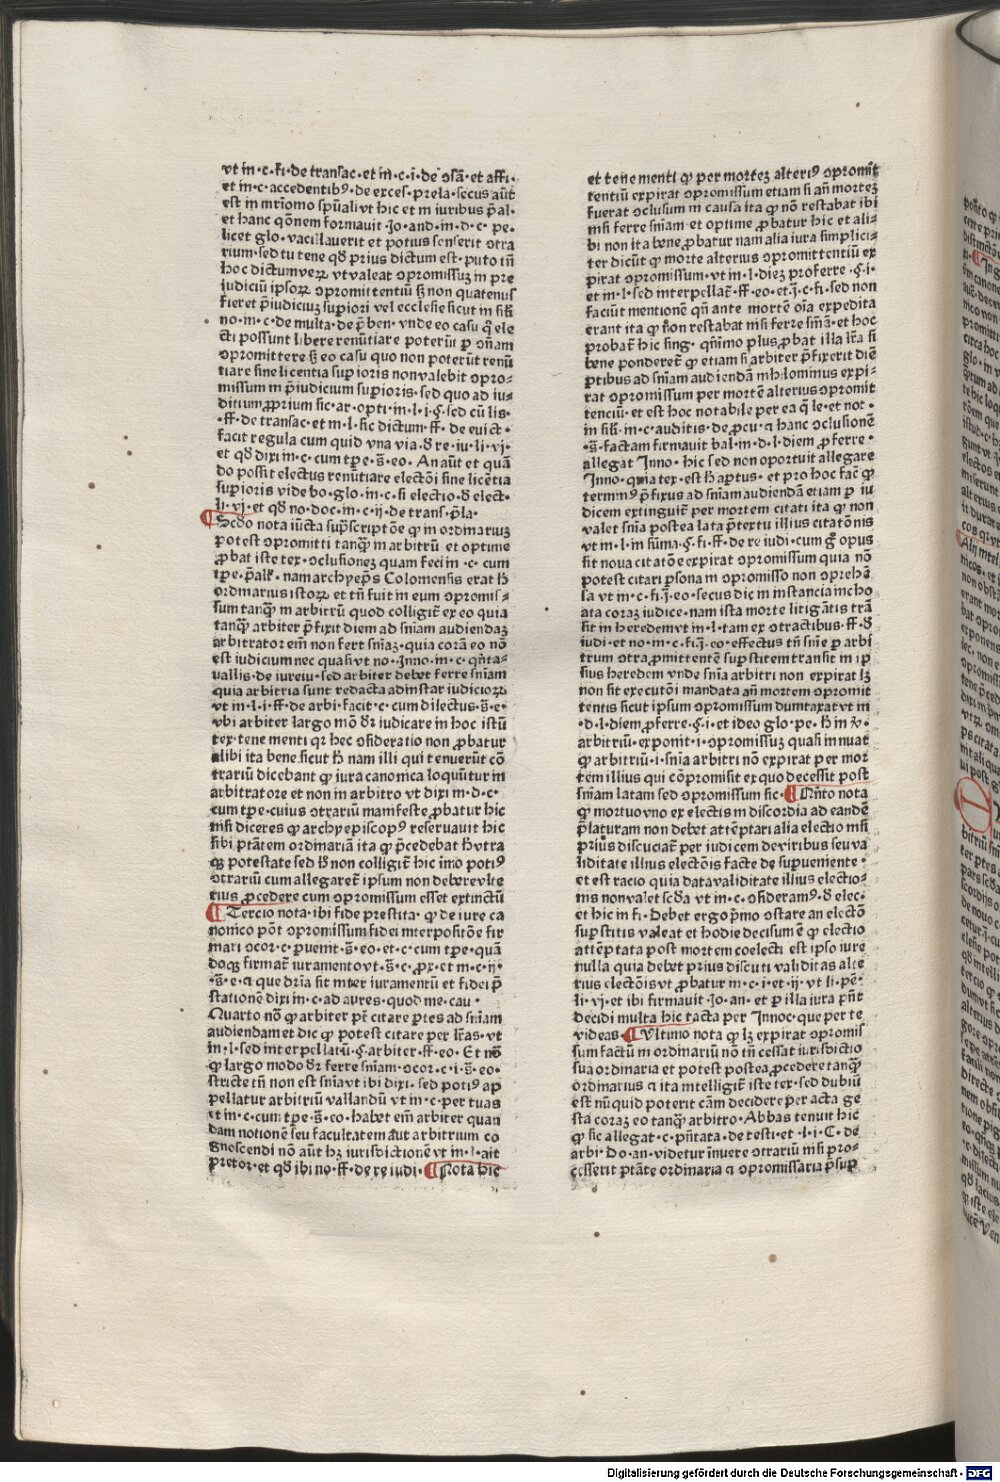 vt in·c·fi·de transac·et in·c·i·de ↄſã·et affi·
et in·c·accedentibꝰ·de exceſ·prela·ſecus aũt
eſt in mr̃imo ſpũali vt hic et in iuribus p̃al·
et hanc qõnem formauit·Jo·and·in·d·c·pe·
licet glo·vacillauerit et potius ſenſerit ↄtra
rium·ſed tu tene qd̓ prius dictum eſt·puto tñ
hoc dictum veꝝ vt valeat ↄpromiſſuꝫ in pre
iudiciũ ipſoꝝ ↄpromittentiũ ſꝫ non quatenus
fieret p̃iudiciuꝫ ſuꝑiori vel eccleſie ſicut in ſil̓i
no·in·c·de multa·de p̃ben·vnde eo caſu q̃ ele
cti poſſunt libere renũtiare poterũt ꝑ ↄñam
ↄpromittere ſꝫ eo caſu quo non poterũt renũ
tiare ſine licentia ſuꝑioris non valebit ↄpro⸗
miſſum in p̃iudicium ſuꝑioris·ſed quo ad iu⸗
ditium ꝓprium ſic·ar·opti·in·l·i·ꝭ·ſed cũ liſ·
·ff·de tranſac·et in·l·ſic dictum·ff·de euict·
facit regula cum quid vna via·ꝺe re·iu·li·vj·
et qd̓ dixi in·c·cum tp̃e·s̃·eo·An aũt et quã
do poſſit electus renũtiare electõi ſine licẽtia
ſuꝑioris vide bo·glo·in·c·ſi electio·ꝺe elect·
li·vj·et qd̓ no·doc·in·c·ij·de tranſ·p̃la·
¶Scd̓o nota iũcta ſuꝑſcriptõe ꝙ in ordinariuꝫ
poteſt ↄpromitti tanqͣꝫ in arbitrũ et optime
ꝓbat iſte tex·ↄcluſioneꝫ quam feci in·c·cum
tp̃e·p̃all̓·nam archyep̃s Colomenſis erat h̓
ordinarius iſtoꝝ et tñ fuit in eum ↄpromiſ⸗
ſum tanqͣꝫ in arbitrũ quod colligit̃ ex eo quia
tanqͣꝫ arbiter p̃fixit diem ad ſniam audiendaꝫ
arbitrator em̃ non fert ſniaꝫ·quia corã eo nõ
eſt iudicium nec quaſi vt no·Inno·in·c·qñta⸗
uallis·de iureiu·ſed arbiter debet ferre ſniam
quia arbitria ſunt redacta ad inſtar iudicioꝝ
vt in·l·i·ff·de arbi·facit·c·cum dilectus·s̃·e·
vbi arbiter largo mõ dr̃ iudicare in hoc iſtũ
tex·tene menti qꝛ hec ↄſideratio non ꝓbatur
alibi ita bene ſicut h̓ nam illi qui tenuerũt cõ
trariũ dicebant ꝙ iura canonica loquũtur in
arbitratore et non in arbitro vt dixi in·d·c·
cum tp̃e·cuius ↄtrariũ manifeſte ꝓbatur hic
niſi diceres ꝙ archyepiſcopꝰ reſeruauit hic
ſibi ptãtem ordinariã ita ꝙ p̃cedebat h̓ vtra
qꝫ poteſtate ſed h̓ non colligit̃ hic imo potiꝰ
ↄtrariũ cum allegaret̃ ipſum non debere vlte
rius ꝓcedere cum ↄpromiſſum eſſet extinctũ
¶Tercio nota·ibi fide preſtita·ꝙ de iure ca
nonico põt ↄpromiſſum fidei interpoſitõe fir
mari ↄcor·c·ꝑuenit·s̃·eo·et·c·cum tp̃e·quã
doqꝫ firmat̃ iuramento vt·s̃·c·ꝓx·et in·c·ij·
·s̃·e·⁊ que dr̃ia ſit inter iuramentũ et fidei p̃
ſtationẽ dixi in·c·ad aures·quod me·cau·
Quarto nõ ꝙ arbiter põt citare ꝑtes ad ſniam
audiendam et dic ꝙ poteſt citare per lr̃as·vt
in·l·ſed interpellatũ·ꝭ·arbiter·ff·eo·Et nõ
ꝙ largo modo dr̃ ferre ſniam·ↄcor·c·i·s̃·eo·
ſtricte tñ non eſt ſnia vt ibi dixi·ſed potiꝰ ap
pellatur arbitriũ vallandũ vt in·c·per tuas
et in·c·cum tp̃e·s̃·eo·habet em̃ arbiter quan
dam notionẽ ſeu facultatem aut arbitrium co
gnoſcendi nõ aũt hꝫ iuriſdictionẽ vt in·l·ait
pretor·et qd̓ ibi no·ff·de re iudi·¶Nota hic
et tene menti ꝙ per morteꝫ alteriꝰ ↄpromit̃
tentiũ expirat ↄpromiſſum etiam ſi añ morteꝫ
fuerat ↄcluſum in cauſa ita ꝙ nõ reſtabat ibi
niſi ferre ſniam·et optime ꝓbatur hic et ali⸗
bi non ita bene ꝓbatur nam alia iura ſimplici⸗
ter dicũt ꝙ morte alterius ↄpromittentiũ ex
pirat ↄpromiſſum·vt in·l·dieꝫ proferre·ꝭ·i·
et in·l·ſed interpellat̃·ff·eo·et·j·c·fi·ſed non
faciũt mentionẽ qñ ante mortẽ oĩa expedita
erant ita ꝙ nõ reſtabat niſi ferre ſm̃ã·et hoc
probat̃ hic ſing·qñimo plus ꝓbat illa lr̃a ſi
bene ponderet̃ ꝙ etiam ſi arbiter p̃fixerit diẽ
ꝑtibus ad ſniam audiendã nihilominus expi⸗
rat ↄpromiſſum per mortẽ alterius ↄpromit
tenciũ·et eſt hoc notabile per ea q̃ le·et not·
in ſil̓i·in·c·auditis·de ꝓcu·⁊ hanc ↄcluſionẽ
·s̃·factam firmauit bal·in·d·l·diem ꝓferre·
allegat Inno·hic ſed non oportuit allegare
Inno·quia tex·eſt h̓ aꝑtus·et pro hoc fac̃ ꝙ
terminꝰ p̃fixus ad ſniam audiendã etiam ꝑ iu
dicem extinguit̃ per mortem citati ita ꝙ non
valet ſnia poſtea lata p̃textu illius citatõnis
vt in·l·in ſũma·ꝭ·fi·ff·de re iudi·cum gͦ opus
ſit noua citatõe expirat ↄpromiſſum quia nõ
poteſt citari ꝑſona in ↄpromiſſo non ↄprehẽ
ſa vt in·c·fi·j·eo·ſecus dic in inſtancia incho
ata coraꝫ iudice·nam iſta morte litigãtis trã
ſit in heredem vt in·l·tam ex ↄtractibus·ff·ꝺ
iudi·et no·in·c·fi·j·eo·effectus tñ ſnie ꝑ arbi
trum ↄtra ꝓmittentẽ ſuꝑſtitem tranſit in ip
ſius heredem vnde ſnia arbitri non expirat lꝫ
non ſit executõi mandata añ mortem ↄpromit
tentis ſicut ipſum ↄpromiſſum dumtaxat vt in
·d·l·diem ꝓferre·ꝭ·i·et ideo glo·pe·h̓ in v̓·
arbitriũ·exponit·i·ↄpromiſſuꝫ quaſi innuat
ꝙ arbitriũ·i·ſnia arbitri nõ expirat per mor
tem illius qui cõpromiſit ex quo deceſſit poſt
ſniam latam ſed ↄpromiſſum ſic·¶Nñto nota
ꝙ mortuo vno ex electis in diſcordia ad eandẽ
p̃laturam non debet attẽptari alia electio niſi
prius diſcuciat̃ per iudicem de viribus ſeu va
liditate illius electõis facte de ſuꝑueniente·
et eſt racio quia data validitate illius electio⸗
nis non valet ſcd̓a vt in·c·ↄſideramꝰ·ꝺ elec·
et hic in fi·Debet ergo p̃mo ↄſtare an electõ
ſuꝑſtitis valeat et hodie deciſum ẽ ꝙ electio
attẽptata poſt mortem coelecti eſt ipſo iure
nulla quia debet prius diſcuti validitas alte
rius electõis vt ꝓbatur in·c·i·et·ij·vt li·pẽ·
li·vj·et ibi firmauit·Jo·an·et ꝑ illa iura p̃nt
decidi multa hic tacta per Innoc·que per te
videas·¶Vltimo nota ꝙ lꝫ expirat ↄpromiſ
ſum factũ in ordinariũ nõ tñ ceſſat iuriſdictio
ſua ordinaria et poteſt poſtea ꝓcedere tanqͣꝫ
ordinarius ⁊ ita intelligit̃ iſte tex·ſed dubiũ
eſt nũquid poterit cãm decidere per acta ge
ſta coraꝫ eo tanqͣꝫ arbitro·Abbas tenuit hic
ꝙ ſic allegat·c·pñtata·de teſti·et·l·i·C·de
arbi·Do·an·videtur inuere ↄtrariũ niſi pro⸗
ceſſerit ptãte ordinaria ⁊ ↄpromiſſaria p̃ſup
Digitalisierung gefördert durch die Deutsche Forschungsgemeinschaft - DFG